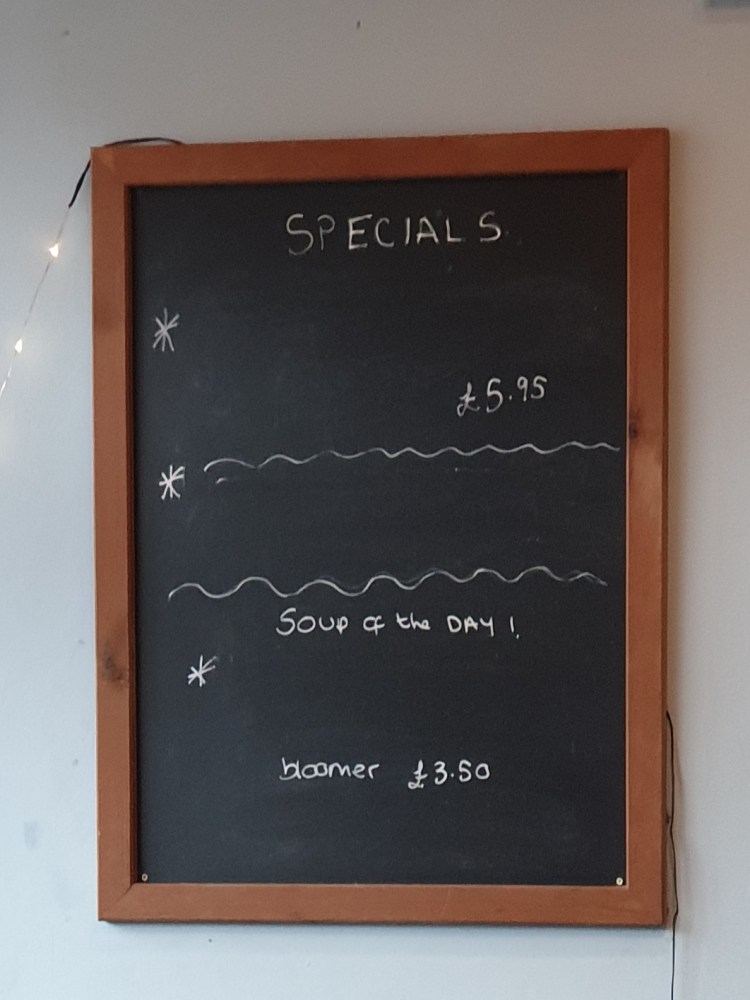 SPECIALS
*
£5.95
*
Soup of the DAY!
*
bloomer £3.50